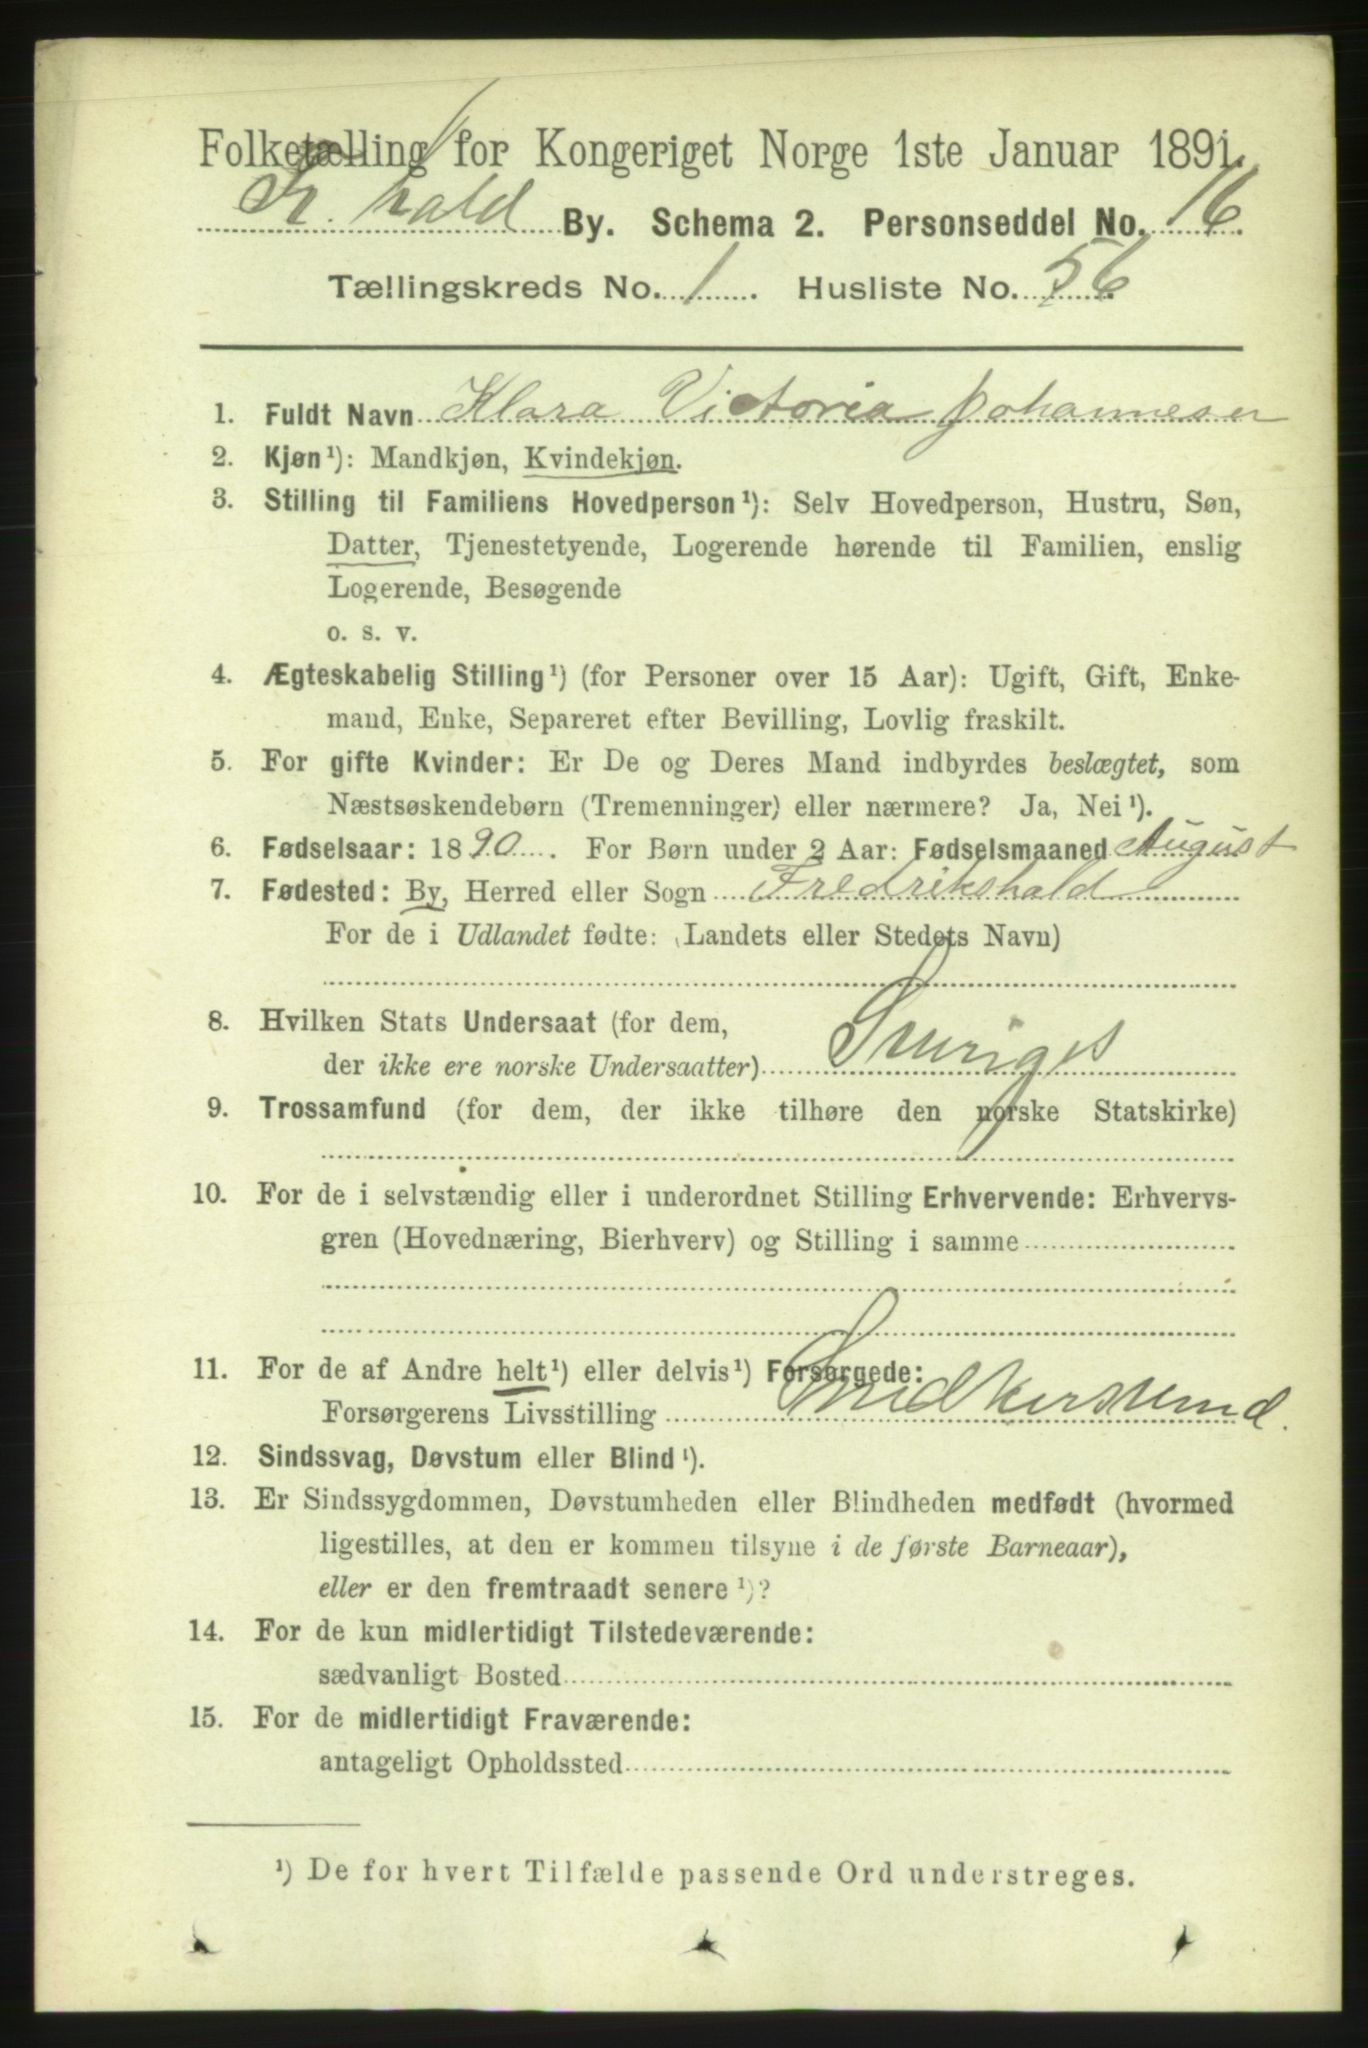 Folketælling for Kongeriget Norge 1ste Januar 1891.
Fr. hald By. Schema 2. Personseddel No. 16.
Tællingskreds No. 1. Husliste No. 56
1. Fuldt Navn Klara Victoria Johannesen
2. Kjøn¹): Mandkjøn, Kvindekjøn.
3. Stilling til Familiens Hovedperson¹): Selv Hovedperson, Hustru, Søn,
Datter, Tjenestetyende, Logerende hørende til Familien, enslig
Logerende, Besøgende
o. s. v.
4. Ægteskabelig Stilling¹) (for Personer over 15 Aar): Ugift, Gift, Enke-
mand, Enke, Separeret efter Bevilling, Lovlig fraskilt.
5. For gifte Kvinder: Er De og Deres Mand indbyrdes beslægtet, som
Næstsøskendebørn (Tremenninger) eller nærmere? Ja, Nei¹).
6. Fødselsaar: 1890. For Børn under 2 Aar: Fødselsmaaned August
7. Fødested: By, Herred eller Sogn Fredrikshald
For de i Udlandet fødte: (Landets eller Stedets Navn)
8. Hvilken Stats Undersaat (for dem,
der ikke ere norske Undersaatter) Sveriges
9. Trossamfund (for dem, der ikke tilhøre den norske Statskirke)
10. For de i selvstændig eller i underordnet Stilling Erhvervende: Erhvervs-
gren (Hovednæring, Bierhverv) og Stilling i samme
11. For de af Andre helt¹) eller delvis¹) Forsørgede:
Forsørgerens Livsstilling
12. Sindssvag, Døvstum eller Blind¹).
13. Er Sindssygdommen, Døvstumheden eller Blindheden medfødt (hvormed
ligestilles, at den er kommen tilsyne i de første Barneaar),
eller er den fremtraadt senere¹)?
14. For de kun midlertidigt Tilstedeværende:
sædvanligt Bosted
15. For de midlertidigt Fraværende:
antageligt Opholdssted
¹) De for hvert Tilfælde passende Ord understreges.